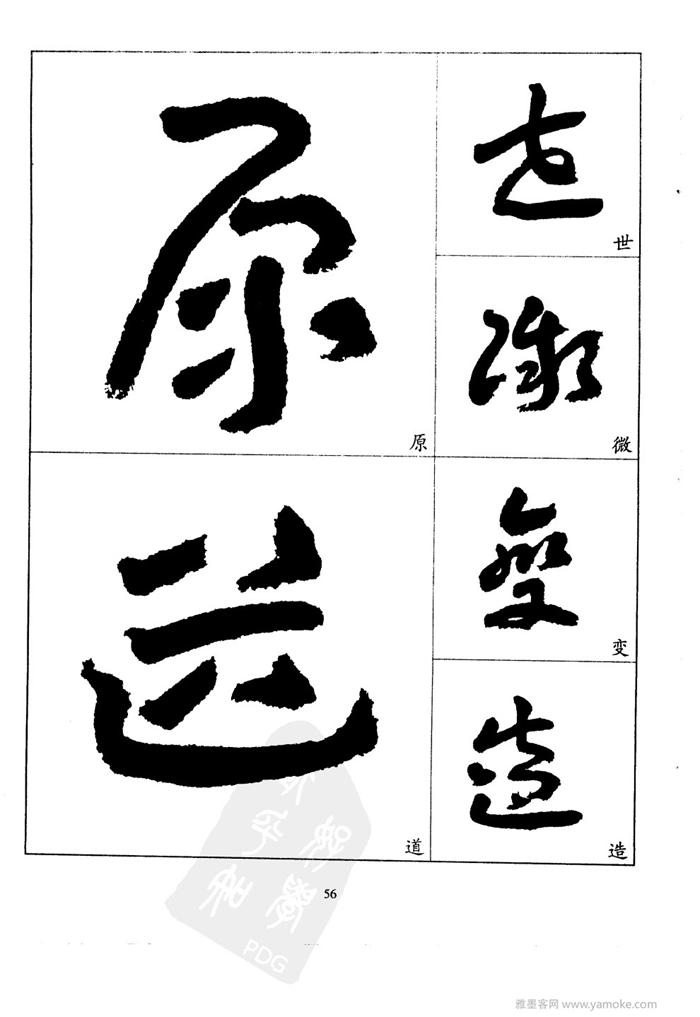 世
微
变
造
原
道
56
PDG
雅墨客网 www.yamoke.com